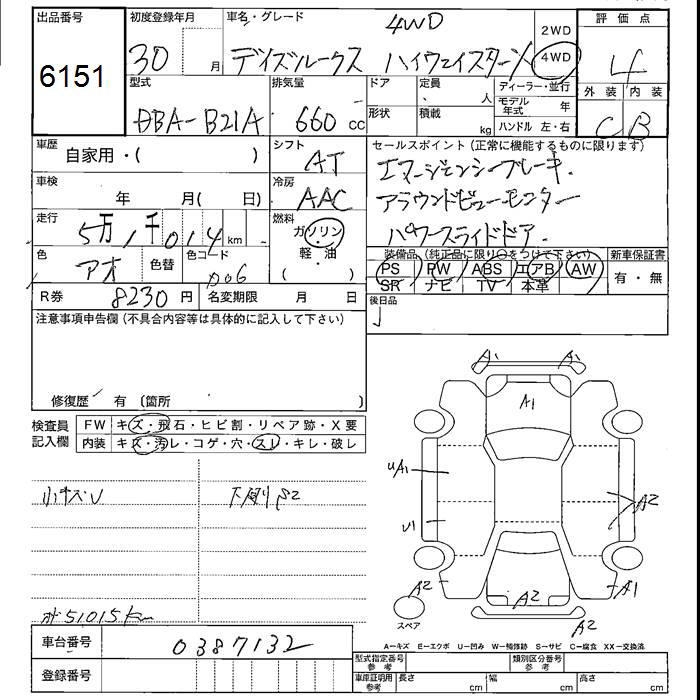 出品番号
6151
初度登録年月
30 月
車名・グレード
4WD
デイズルークス ハイウェイスター
2WD
4WD
評価点
4
外装 内装
C B
型式
DBA-B21A
排気量
660 cc
ドア
形状
定員 人
積載 kg
ディーラー・並行
モデル年式 年
ハンドル 左・右
車歴
自家用・( )
シフト
AT
セールスポイント (正常に機能するものに限ります)
エマージェンシーブレーキ.
アラウンドビューモニター
パワースライドドア.
車検
年 月( 日)
冷房
AAC
走行
5万1千014 km
燃料
ガソリン
・
軽・油
( )
色
アオ
色替
色コード
装備品 (純正品に限り○をつけて下さい)
PS PW ABS エアB AW
SR ナビ TV 本革
新車保証書
有・無
R券 8230 円 名変期限 月 日
後日品
注意事項申告欄 (不具合内容等は具体的に記入して下さい)
修復歴 有 (箇所 )
検査員記入欄
FW キズ・飛石・ヒビ割・リペア跡・X要
内装 キズ・汚レ・コゲ・穴・スレ・キレ・破レ
小キズU
下廻りS2
51015km
A1 A1
A1
UA1
U1
A2
A2
A2
A1
A2
スペア
A−キズ E−エクボ U−凹み W−補修跡 S−サビ C−腐食 XX−交換済
車台番号 0387132
登録番号
型式指定番号 参考
類別区分番号 参考
車庫証明用 参考
長さ cm 幅 cm 高さ cm